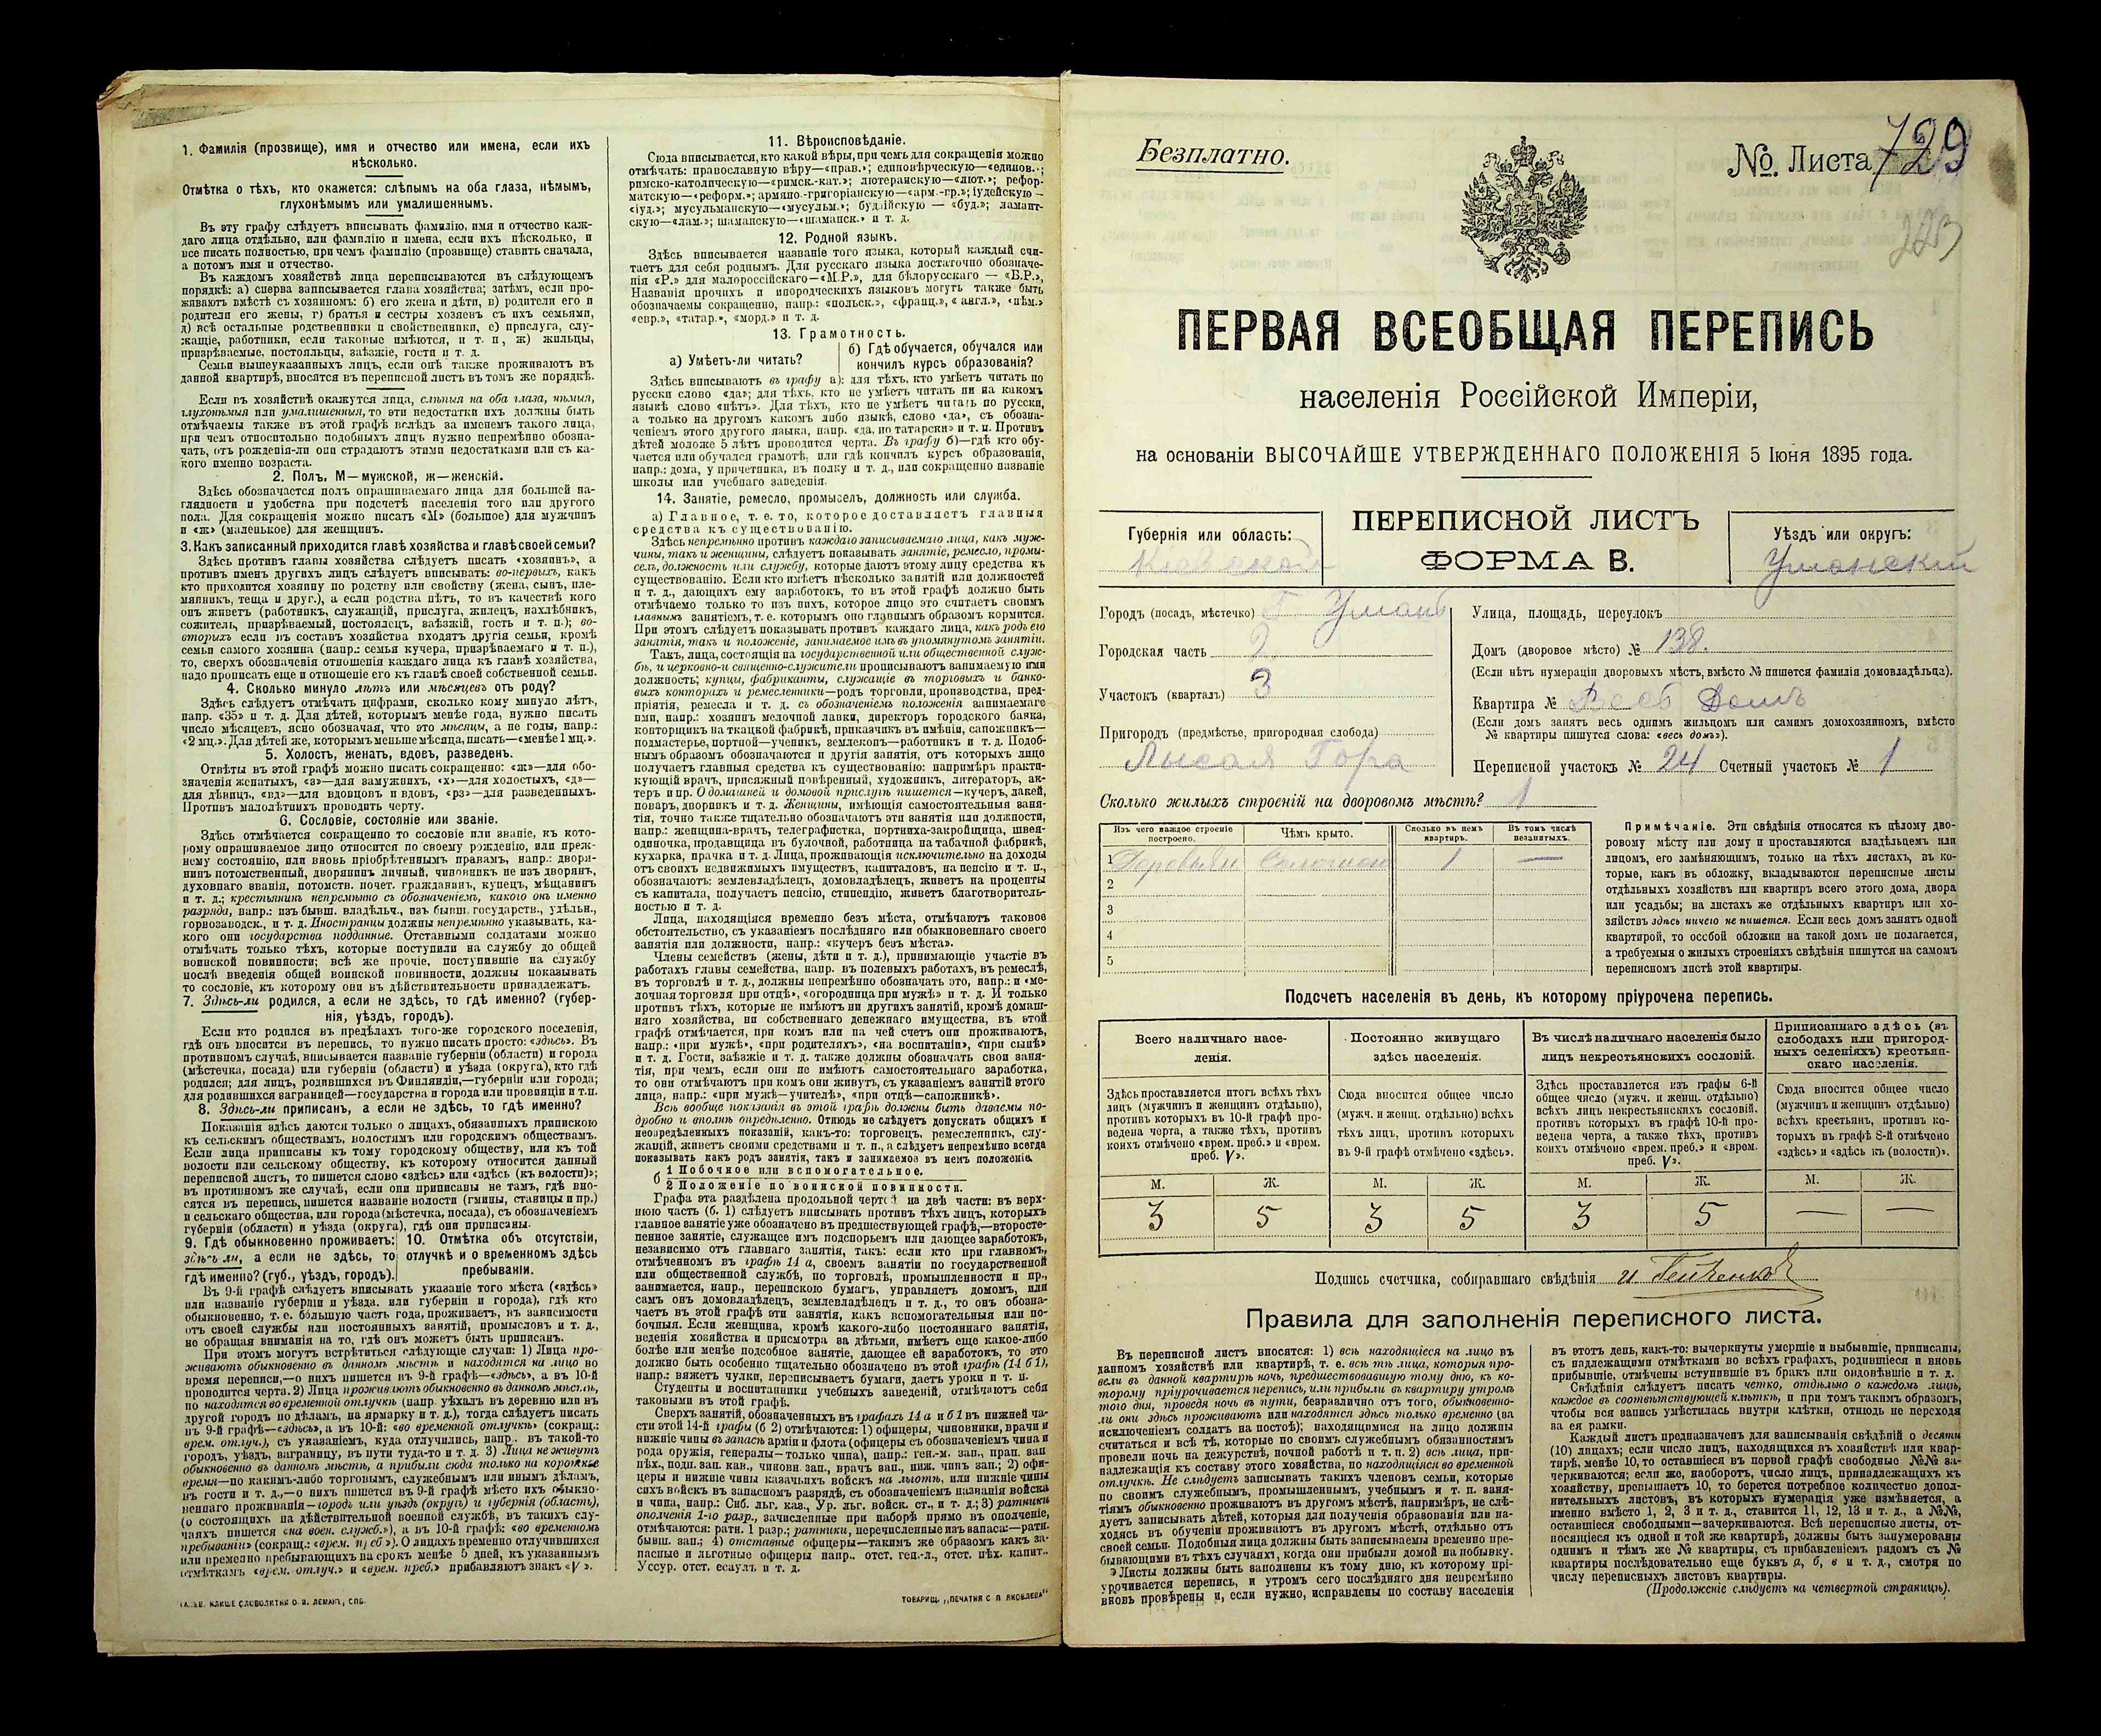 1. Фамилія (прозвище), имя и отчество или имена, если ихъ
нѣсколько.
Отмѣтка о тѣхъ, кто окажется: слѣпымъ на оба глаза, нѣмымъ,
глухонѣмымъ или умалишеннымъ.
Въ эту графу слѣдуетъ вписывать фамилію, имя и отчество каж-
даго лица отдѣльно, или фамилію и имена, если ихъ нѣсколько, и
все писать полностью, при чемъ фамилію (прозвище) ставить сначала,
а потомъ имя и отчество.
Въ каждомъ хозяйствѣ лица переписываются въ слѣдующемъ
порядкѣ: а) сперва записывается глава хозяйства; затѣмъ, если про-
живаютъ вмѣстѣ съ хозяиномъ: б) его жена и дѣти, в) родители его и
родители его жены, г) братья и сестры хозяевъ съ ихъ семьями,
д) всѣ остальные родственники и свойственники, е) прислуга, слу-
жащіе, работники, если таковые имѣются, и т. п, ж) жильцы,
призрѣваемые, постояльцы, заѣзжіе, гости и т. д.
Семьи вышеуказанныхъ лицъ, если онѣ также проживаютъ въ
данной квартирѣ, вносятся въ переписной листъ въ томъ же порядкѣ.
Если въ хозяйствѣ окажутся лица, слѣпыя на оба глаза, нѣмыя,
глухонѣмыя или умалишенныя, то эти недостатки ихъ должны быть
отмѣчаемы также въ этой графѣ вслѣдъ за именемъ такого лица,
при чемъ относительно подобныхъ лицъ нужно непремѣнно обозна-
чать, отъ рожденія-ли они страдаютъ этими недостатками или съ ка-
кого именно возраста.
2. Полъ. М—мужской, ж—женскій.
Здѣсь обозначается полъ опрашиваемаго лица для большей на-
глядности и удобства при подсчетѣ населенія того или другого
пола. Для сокращенія можно писать «М» (большое) для мужчинъ
и «ж» (маленькое) для женщинъ.
3. Какъ записанный приходится главѣ хозяйства и главѣ своей семьи?
Здѣсь противъ главы хозяйства слѣдуетъ писать «хозяинъ», а
противъ именъ другихъ лицъ слѣдуетъ вписывать: во-первыхъ, какъ
кто приходится хозяину по родству или свойству (жена, сынъ, пле-
мянникъ, теща и друг.), а если родства нѣтъ, то въ качествѣ кого
онъ живетъ (работникъ, служащій, прислуга, жилецъ, нахлѣбникъ,
сожитель, призрѣваемый, постоялецъ, заѣзжій, гость и т. п.); во-
вторыхъ если въ составъ хозяйства входятъ другія семьи, кромѣ
семьи самого хозяина (напр.: семья кучера, призрѣваемаго и т. п.),
то, сверхъ обозначенія отношенія каждаго лица къ главѣ хозяйства,
надо прописать еще и отношеніе его къ главѣ своей собственной семьи.
4. Сколько минуло лѣтъ или мѣсяцевъ отъ роду?
Здѣсь слѣдуетъ отмѣчать цифрами, сколько кому минуло лѣтъ,
напр. «35» и т. д. Для дѣтей, которымъ менѣе года, нужно писать
число мѣсяцевъ, ясно обозначая, что это мѣсяцы, а не годы, напр.:
«2 мц.». Для дѣтей же, которымъ меньше мѣсяца, писать—«менѣе 1 мц.».
5. Холостъ, женатъ, вдовъ, разведенъ.
Отвѣты въ этой графѣ можно писать сокращенно: «ж»—для обо-
значенія женатыхъ, «з»—для замужнихъ, «х»—для холостыхъ, «д»—
для дѣвицъ, «вд»—для вдовцовъ и вдовъ, «рз»—для разведенныхъ.
Противъ малолѣтнихъ проводить черту.
6. Сословіе, состояніе или званіе.
Здѣсь отмѣчается сокращенно то сословіе или званіе, къ кото-
рому опрашиваемое лицо относится по своему рожденію, или преж-
нему состоянію, или вновь пріобрѣтеннымъ правамъ, напр.: дворя-
нинъ потомственный, дворянинъ личный, чиновникъ не изъ дворянъ,
духовнаго званія, потомств. почет. гражданинъ, купецъ, мѣщанинъ
и т. д.; крестьянинъ непремѣнно съ обозначеніемъ, какого онъ именно
разряда, напр.: изъ бывш. владѣльч., изъ бывш. государств., удѣльн.,
горнозаводск., и т. д. Иностранцы должны непремѣнно указывать, ка-
кого они государства подданные. Отставными солдатами можно
отмѣчать только тѣхъ, которые поступили на службу до общей
воинской повинности; всѣ же прочіе, поступившіе на службу
послѣ введенія общей воинской повинности, должны показывать
то сословіе, къ которому они въ дѣйствительности принадлежатъ.
7. Здѣсь-ли родился, а если не здѣсь, то гдѣ именно? (губер-
нія, уѣздъ, городъ).
Если кто родился въ предѣлахъ того-же городского поселенія,
гдѣ онъ вносится въ перепись, то нужно писать просто: «здѣсь». Въ
противномъ случаѣ, вписывается названіе губерніи (области) и города
(мѣстечка, посада) или губерніи (области) и уѣзда (округа), кто гдѣ
родился; для лицъ, родившихся въ Финляндіи,—губерніи или города;
для родившихся заграницей—государства и города или провинціи и т.п.
8. Здѣсь-ли приписанъ, а если не здѣсь, то гдѣ именно?
Показанія здѣсь даются только о лицахъ, обязанныхъ припискою
къ сельскимъ обществамъ, волостямъ или городскимъ обществамъ.
Если лица приписаны къ тому городскому обществу, или къ той
волости или сельскому обществу, къ которому относится данный
переписной листъ, то пишется слово «здѣсь» или «здѣсь (къ волости)»;
въ противномъ же случаѣ, если они приписаны не тамъ, гдѣ вно-
сятся въ перепись, пишется названіе волости (гмины, станицы и пр.)
и сельскаго общества, или города (мѣстечка, посада), съ обозначеніемъ
губерніи (области) и уѣзда (округа), гдѣ они приписаны.
9. Гдѣ обыкновенно проживаетъ: здѣсь-ли, а если не здѣсь, то гдѣ именно? (губ., уѣздъ, городъ).
10. Отмѣтка объ отсутствіи, отлучкѣ и о временномъ здѣсь пребываніи.
Въ 9-й графѣ слѣдуетъ вписывать указаніе того мѣста («здѣсь»
или названіе губерніи и уѣзда, или губерніи и города), гдѣ кто
обыкновенно, т. е. большую часть года, проживаетъ, въ зависимости
отъ своей службы или постоянныхъ занятій, промысловъ и т. д.,
не обращая вниманія на то, гдѣ онъ можетъ быть приписанъ.
При этомъ могутъ встрѣтиться слѣдующіе случаи: 1) Лица про-
живаютъ обыкновенно въ данномъ мѣстѣ и находятся на лицо во
время переписи,—о нихъ пишется въ 9-й графѣ—«здѣсь», а въ 10-й
проводится черта. 2) Лица проживаютъ обыкновенно въ данномъ мѣстѣ,
но находятся во временной отлучкѣ (напр. уѣхалъ въ деревню или въ
другой городъ по дѣламъ, на ярмарку и т. д.), тогда слѣдуетъ писать
въ 9-й графѣ—«здѣсь», а въ 10-й: «во временной отлучкѣ» (сокращ.:
врем. отлуч.), съ указаніемъ, куда отлучились, напр.: въ такой-то
городъ, уѣздъ, заграницу, въ пути туда-то и т. д. 3) Лица не живутъ
обыкновенно въ данномъ мѣстѣ, а прибыли сюда только на короткое
время—по какимъ-либо торговымъ, служебнымъ или инымъ дѣламъ,
въ гости и т. д.,—о нихъ пишется въ 9-й графѣ мѣсто ихъ обыкно-
веннаго проживанія—городъ или уѣздъ (округъ) и губернія (область),
(о состоящихъ на дѣйствительной военной службѣ, въ такихъ слу-
чаяхъ пишется «на воен. службѣ»), а въ 10-й графѣ: «во временномъ
пребываніи» (сокращ.: «врем. преб»). О лицахъ временно отлучившихся
или временно пребывающихъ на срокъ менѣе 5 дней, къ указаннымъ
отмѣткамъ «врем. отлуч.» и «врем. преб.» прибавляютъ знакъ «V».
КЛИШЕ СЛОВОЛИТНИ О. И. ЛЕМАНЪ, СПБ.
11. Вѣроисповѣданіе.
Сюда вписывается, кто какой вѣры, при чемъ для сокращенія можно
отмѣчать: православную вѣру—«прав.»; единовѣрческую—«единов.»;
римско-католическую—«римск.-кат.»; лютеранскую—«лют.»; рефор-
матскую—«реформ.»; армяно-григоріанскую—«арм.-гр.»; іудейскую—
«іуд.»; мусульманскую—«мусульм.»; буддійскую — «буд.»; ламаит-
скую—«лам.»; шаманскую—«шаманск.» и т. д.
12. Родной языкъ.
Здѣсь вписывается названіе того языка, который каждый счи-
таетъ для себя роднымъ. Для русскаго языка достаточно обозначе-
нія «Р.» для малороссійскаго—«М.Р.», для бѣлорусскаго — «Б.Р.»,
Названія прочихъ и инородческихъ языковъ могутъ также быть
обозначаемы сокращенно, напр.: «польск.», «франц.», «англ.», «нѣм.»
«евр.», «татар.», «морд.» и т. д.
13. Грамотность.
а) Умѣетъ-ли читать?
б) Гдѣ обучается, обучался или кончилъ курсъ образованія?
Здѣсь вписываютъ въ графу а): для тѣхъ, кто умѣетъ читать по
русски слово «да»; для тѣхъ, кто не умѣетъ читать ни на какомъ
языкѣ слово «нѣтъ». Для тѣхъ, кто не умѣетъ читать по русски,
а только на другомъ какомъ либо языкѣ, слово «да», съ обозна-
ченіемъ этого другого языка, напр. «да, по татарски» и т. п. Противъ
дѣтей моложе 5 лѣтъ проводится черта. Въ графу б)—гдѣ кто обу-
чается или обучался грамотѣ, или гдѣ кончилъ курсъ образованія,
напр.: дома, у причетника, въ полку и т. д., или сокращенно названіе
школы или учебнаго заведенія.
14. Занятіе, ремесло, промыселъ, должность или служба.
а) Главное, т. е. то, которое доставляетъ главныя
средства къ существованію.
Здѣсь непремѣнно противъ каждаго записываемаго лица, какъ муж-
чины, такъ и женщины, слѣдуетъ показывать занятіе, ремесло, промы-
селъ, должность или службу, которые даютъ этому лицу средства къ
существованію. Если кто имѣетъ нѣсколько занятій или должностей
и т. д., дающихъ ему заработокъ, то въ этой графѣ должно быть
отмѣчаемо только то изъ нихъ, которое лицо это считаетъ своимъ
главнымъ занятіемъ, т. е. которымъ оно главнымъ образомъ кормится.
При этомъ слѣдуетъ показывать противъ каждаго лица, какъ родъ его
занятія, такъ и положеніе, занимаемое имъ въ упомянутомъ занятіи.
Такъ, лица, состоящія на государственной или общественной служ-
бѣ, и церковно-и священно-служители прописываютъ занимаемую ими
должность; купцы, фабриканты, служащіе въ торговыхъ и банко-
выхъ конторахъ и ремесленники—родъ торговли, производства, пред-
пріятія, ремесла и т. д. съ обозначеніемъ положенія занимаемаго
ими, напр.: хозяинъ мелочной лавки, директоръ городского банка,
конторщикъ на ткацкой фабрикѣ, приказчикъ въ имѣніи, сапожникъ—
подмастерье, портной—ученикъ, землекопъ—работникъ и т. д. Подоб-
нымъ образомъ обозначаются и другія занятія, отъ которыхъ лицо
получаетъ главныя средства къ существованію: напримѣръ практи-
кующій врачъ, присяжный повѣренный, художникъ, литераторъ, ак-
теръ и пр. О домашней и домовой прислугѣ пишется—кучеръ, лакей,
поваръ, дворникъ и т. д. Женщины, имѣющія самостоятельныя заня-
тія, точно также тщательно обозначаютъ эти занятія или должности,
напр.: женщина-врачъ, телеграфистка, портниха-закройщица, швея-
одиночка, продавщица въ булочной, работница на табачной фабрикѣ,
кухарка, прачка и т. д. Лица, проживающія исключительно на доходы
отъ своихъ недвижимыхъ имуществъ, капиталовъ, на пенсію и т. п.,
обозначаютъ: землевладѣлецъ, домовладѣлецъ, живетъ на проценты
съ капитала, получаетъ пенсію, стипендію, живетъ благотворитель-
ностью и т. д.
Лица, находящіяся временно безъ мѣста, отмѣчаютъ таковое
обстоятельство, съ указаніемъ послѣдняго или обыкновеннаго своего
занятія или должности, напр.: «кучеръ безъ мѣста».
Члены семействъ (жены, дѣти и т. д.), принимающіе участіе въ
работахъ главы семейства, напр. въ полевыхъ работахъ, въ ремеслѣ,
въ торговлѣ и т. д., должны непремѣнно обозначать это, напр.: и «ме-
лочная торговля при отцѣ», «огородница при мужѣ» и т. д. И только
противъ тѣхъ, которые не имѣютъ ни другихъ занятій, кромѣ домаш-
няго хозяйства, ни собственнаго денежнаго имущества, въ этой
графѣ отмѣчается, при комъ или на чей счетъ они проживаютъ,
напр.: «при мужѣ», «при родителяхъ», «на воспитаніи», «при сынѣ»
и т. д. Гости, заѣзжіе и т. д. также должны обозначать свои заня-
тія, при чемъ, если они не имѣютъ самостоятельнаго заработка,
то они отмѣчаютъ при комъ они живутъ, съ указаніемъ занятій этого
лица, напр.: «при мужѣ—учителѣ», «при отцѣ—сапожникѣ».
Всѣ вообще показанія въ этой графѣ должны быть даваемы по-
дробно и вполнѣ опредѣленно. Отнюдь не слѣдуетъ допускать общихъ и
неопредѣленныхъ показаній, какъ-то: торговецъ, ремесленникъ, слу-
жащій, живетъ своими средствами и т. п., а слѣдуетъ непремѣнно всегда
показывать какъ родъ занятія, такъ и занимаемое въ немъ положеніе.
б 1 Побочное или вспомогательное.
2 Положеніе по воинской повинности.
Графа эта раздѣлена продольной чертой на двѣ части: въ верх-
нюю часть (б. 1) слѣдуетъ вписывать противъ тѣхъ лицъ, которыхъ
главное занятіе уже обозначено въ предшествующей графѣ,—второсте-
пенное занятіе, служащее имъ подспорьемъ или дающее заработокъ,
независимо отъ главнаго занятія, такъ: если кто при главномъ,
отмѣченномъ въ графѣ 14 а, своемъ занятіи по государственной
или общественной службѣ, по торговлѣ, промышленности и пр.,
занимается, напр., перепискою бумагъ, управляетъ домомъ, или
самъ онъ домовладѣлецъ, землевладѣлецъ и т. д., то онъ обозна-
чаетъ въ этой графѣ эти занятія, какъ вспомогательныя или по-
бочныя. Если женщина, кромѣ какого-либо постояннаго занятія,
веденія хозяйства и присмотра за дѣтьми, имѣетъ еще какое-либо
болѣе или менѣе подсобное занятіе, дающее ей заработокъ, то это
должно быть особенно тщательно обозначено въ этой графѣ (14 б 1),
напр.: вяжетъ чулки, переписываетъ бумаги, даетъ уроки и т. п.
Студенты и воспитанники учебныхъ заведеній, отмѣчаютъ себя
таковыми въ этой графѣ.
Сверхъ занятій, обозначенныхъ въ графахъ 14 а и б 1 въ нижней ча-
сти этой 14-й графы (б 2) отмѣчаются: 1) офицеры, чиновники, врачи и
нижніе чины въ запасѣ арміи и флота (офицеры съ обозначеніемъ чина и
рода оружія, генералы—только чина), напр.: ген.-м. зап., прап. зап
пѣх., подп. зап. кав., чиновн. зап., врачъ зап., ниж. чинъ зап.; 2) офи-
церы и нижніе чины казачьихъ войскъ на льготѣ, или нижніе чины
сихъ войскъ въ запасномъ разрядѣ, съ обозначеніемъ названія войска
и чина, напр.: Сиб. льг. каз., Ур. льг. войск. ст., и т. д.; 3) ратники
ополченія 1-го разр., зачисленные при наборѣ прямо въ ополченіе,
отмѣчаются: ратн. 1 разр.; ратники, перечисленные изъ запаса:—ратн.
бывш. зап.; 4) отставные офицеры—такимъ же образомъ какъ за-
пасные и льготные офицеры напр.. отст. ген.-л., отст. пѣх. капит..
Уссур. отст. есаулъ и т. д.
ТОВАРИЩ. „ПЕЧАТНЯ С. П. ЯКОВЛЕВА“
Безплатно.
№. Листа 729
ПЕРВАЯ ВСЕОБЩАЯ ПЕРЕПИСЬ
населенія Россійской Имперіи,
на основаніи ВЫСОЧАЙШЕ УТВЕРЖДЕННАГО ПОЛОЖЕНІЯ 5 Іюня 1895 года.
ПЕРЕПИСНОЙ ЛИСТЪ
ФОРМА В.
Губернія или область:
Кіевской
Уѣздъ или округъ:
Уманскій
Городъ (посадъ, мѣстечко) Г. Умань
Городская часть 2
Участокъ (кварталъ) 3
Пригородъ (предмѣстье, пригородная слобода)
Лысая Гора
Улица, площадь, переулокъ
Домъ (дворовое мѣсто) № 138.
(Если нѣтъ нумераціи дворовыхъ мѣстъ, вмѣсто № пишется фамилія домовладѣльца).
Квартира № Весь Домъ
(Если домъ занятъ весь однимъ жильцомъ или самимъ домохозяиномъ, вмѣсто
№ квартиры пишутся слова: «весь домъ»).
Переписной участокъ № 24 Счетный участокъ № 1
Сколько жилыхъ строеній на дворовомъ мѣстѣ? 1
Изъ чего каждое строеніе построено.
Чѣмъ крыто.
Сколько въ немъ квартиръ.
Въ томъ числѣ незанятыхъ.
1 1 —
2
3
4
5
Примѣчаніе. Эти свѣдѣнія относятся къ цѣлому дво-
ровому мѣсту или дому и проставляются владѣльцемъ или
лицомъ, его замѣняющимъ, только на тѣхъ листахъ, въ ко-
торые, какъ въ обложку, вкладываются переписные листы
отдѣльныхъ хозяйствъ или квартиръ всего этого дома, двора
или усадьбы; на листахъ же отдѣльныхъ квартиръ или хо-
зяйствъ здѣсь ничего не пишется. Если весь домъ занятъ одной
квартирой, то особой обложки на такой домъ не полагается,
а требуемыя о жилыхъ строеніяхъ свѣдѣнія пишутся на самомъ
переписномъ листѣ этой квартиры.
Подсчетъ населенія въ день, къ которому пріурочена перепись.
Всего наличнаго насе-
ленія.
Постоянно живущаго
здѣсь населенія.
Въ числѣ наличнаго населенія было
лицъ некрестьянскихъ сословій.
Приписаннаго здѣсь (въ
слободахъ или пригород-
ныхъ селеніяхъ) крестьян-
скаго населенія.
Здѣсь проставляется итогъ всѣхъ тѣхъ
лицъ (мужчинъ и женщинъ отдѣльно),
противъ которыхъ въ 10-й графѣ про-
ведена черта, а также тѣхъ, противъ
коихъ отмѣчено «врем. преб.» и «врем.
преб. V».
Сюда вносится общее число
(мужч. и женщ. отдѣльно) всѣхъ
тѣхъ лицъ, противъ которыхъ
въ 9-й графѣ отмѣчено «здѣсь».
Здѣсь проставляется изъ графы 6-й
общее число (мужч. и женщ. отдѣльно)
всѣхъ лицъ некрестьянскихъ сословій.
противъ которыхъ въ графѣ 10-й про-
ведена черта, а также тѣхъ, противъ
коихъ отмѣчено «врем. преб.» и «врем.
преб. V».
Сюда вносится общее число
(мужчинъ и женщинъ отдѣльно)
всѣхъ крестьянъ, противъ ко-
торыхъ въ графѣ 8-й отмѣчено
«здѣсь» и «здѣсь къ (волости)».
М. Ж. М. Ж. М. Ж. М. Ж.
3 5 3 5 3 5 — —
Подпись счетчика, собиравшаго свѣдѣнія
Правила для заполненія переписного листа.
Въ переписной листъ вносятся: 1) всѣ находящіеся на лицо въ
данномъ хозяйствѣ или квартирѣ, т. е. всѣ тѣ лица, которыя про-
вели въ данной квартирѣ ночь, предшествовавшую тому дню, къ ко-
торому пріурочивается перепись, или прибыли въ квартиру утромъ
того дня, проведя ночь въ пути, безразлично отъ того, обыкновенно-
ли они здѣсь проживаютъ или находятся здѣсь только временно (за
исключеніемъ солдатъ на постоѣ); находящимися на лицо должны
считаться и всѣ тѣ, которые по своимъ служебнымъ обязанностямъ
провели ночь на дежурствѣ, ночной работѣ и т. п. 2) всѣ лица, при-
надлежащія къ составу этого хозяйства, но находящіяся во временной
отлучкѣ. Не слѣдуетъ записывать такихъ членовъ семьи, которые
по своимъ служебнымъ, промышленнымъ, учебнымъ и т. п. заня-
тіямъ обыкновенно проживаютъ въ другомъ мѣстѣ, напримѣръ, не слѣ-
дуетъ записывать дѣтей, которыя для полученія образованія или на-
ходясь въ обученіи проживаютъ въ другомъ мѣстѣ, отдѣльно отъ
своей семьи. Подобныя лица должны быть записываемы временно пре-
бывающими въ тѣхъ случаяхъ, когда они прибыли домой на побывку.
Листы должны быть заполнены къ тому дню, къ которому прі-
урочивается перепись, и утромъ сего послѣдняго дня непремѣнно
вновь провѣрены и, если нужно, исправлены по составу населенія
въ этотъ день, какъ-то: вычеркнуты умершіе и выбывшіе, приписаны,
съ надлежащими отмѣтками во всѣхъ графахъ, родившіеся и вновь
прибывшіе, отмѣчены вступившіе въ бракъ или овдовѣвшіе и т. д.
Свѣдѣнія слѣдуетъ писать четко, отдѣльно о каждомъ лицѣ,
каждое въ соотвѣтствующей клѣткѣ, и при томъ такимъ образомъ,
чтобы вся запись умѣстилась внутри клѣтки, отнюдь не переходя
за ея рамки.
Каждый листъ предназначенъ для записыванія свѣдѣній о десяти
(10) лицахъ; если число лицъ, находящихся въ хозяйствѣ или квар-
тирѣ, менѣе 10, то оставшіеся въ первой графѣ свободные №№ за-
черкиваются; если же, наоборотъ, число лицъ, принадлежащихъ къ
хозяйству, превышаетъ 10, то берется потребное количество допол-
нительныхъ листовъ, въ которыхъ нумерація уже измѣняется, а
именно вмѣсто 1, 2, 3 и т. д., ставится 11, 12, 13 и т. д., а №№,
оставшіеся свободными—зачеркиваются. Всѣ переписные листы, от-
носящіеся къ одной и той же квартирѣ, должны быть занумерованы
однимъ и тѣмъ же № квартиры, съ прибавленіемъ рядомъ съ №
квартиры послѣдовательно еще буквъ а, б, в и т. д., смотря по
числу переписныхъ листовъ квартиры.
(Продолженіе слѣдуетъ на четвертой страницѣ).